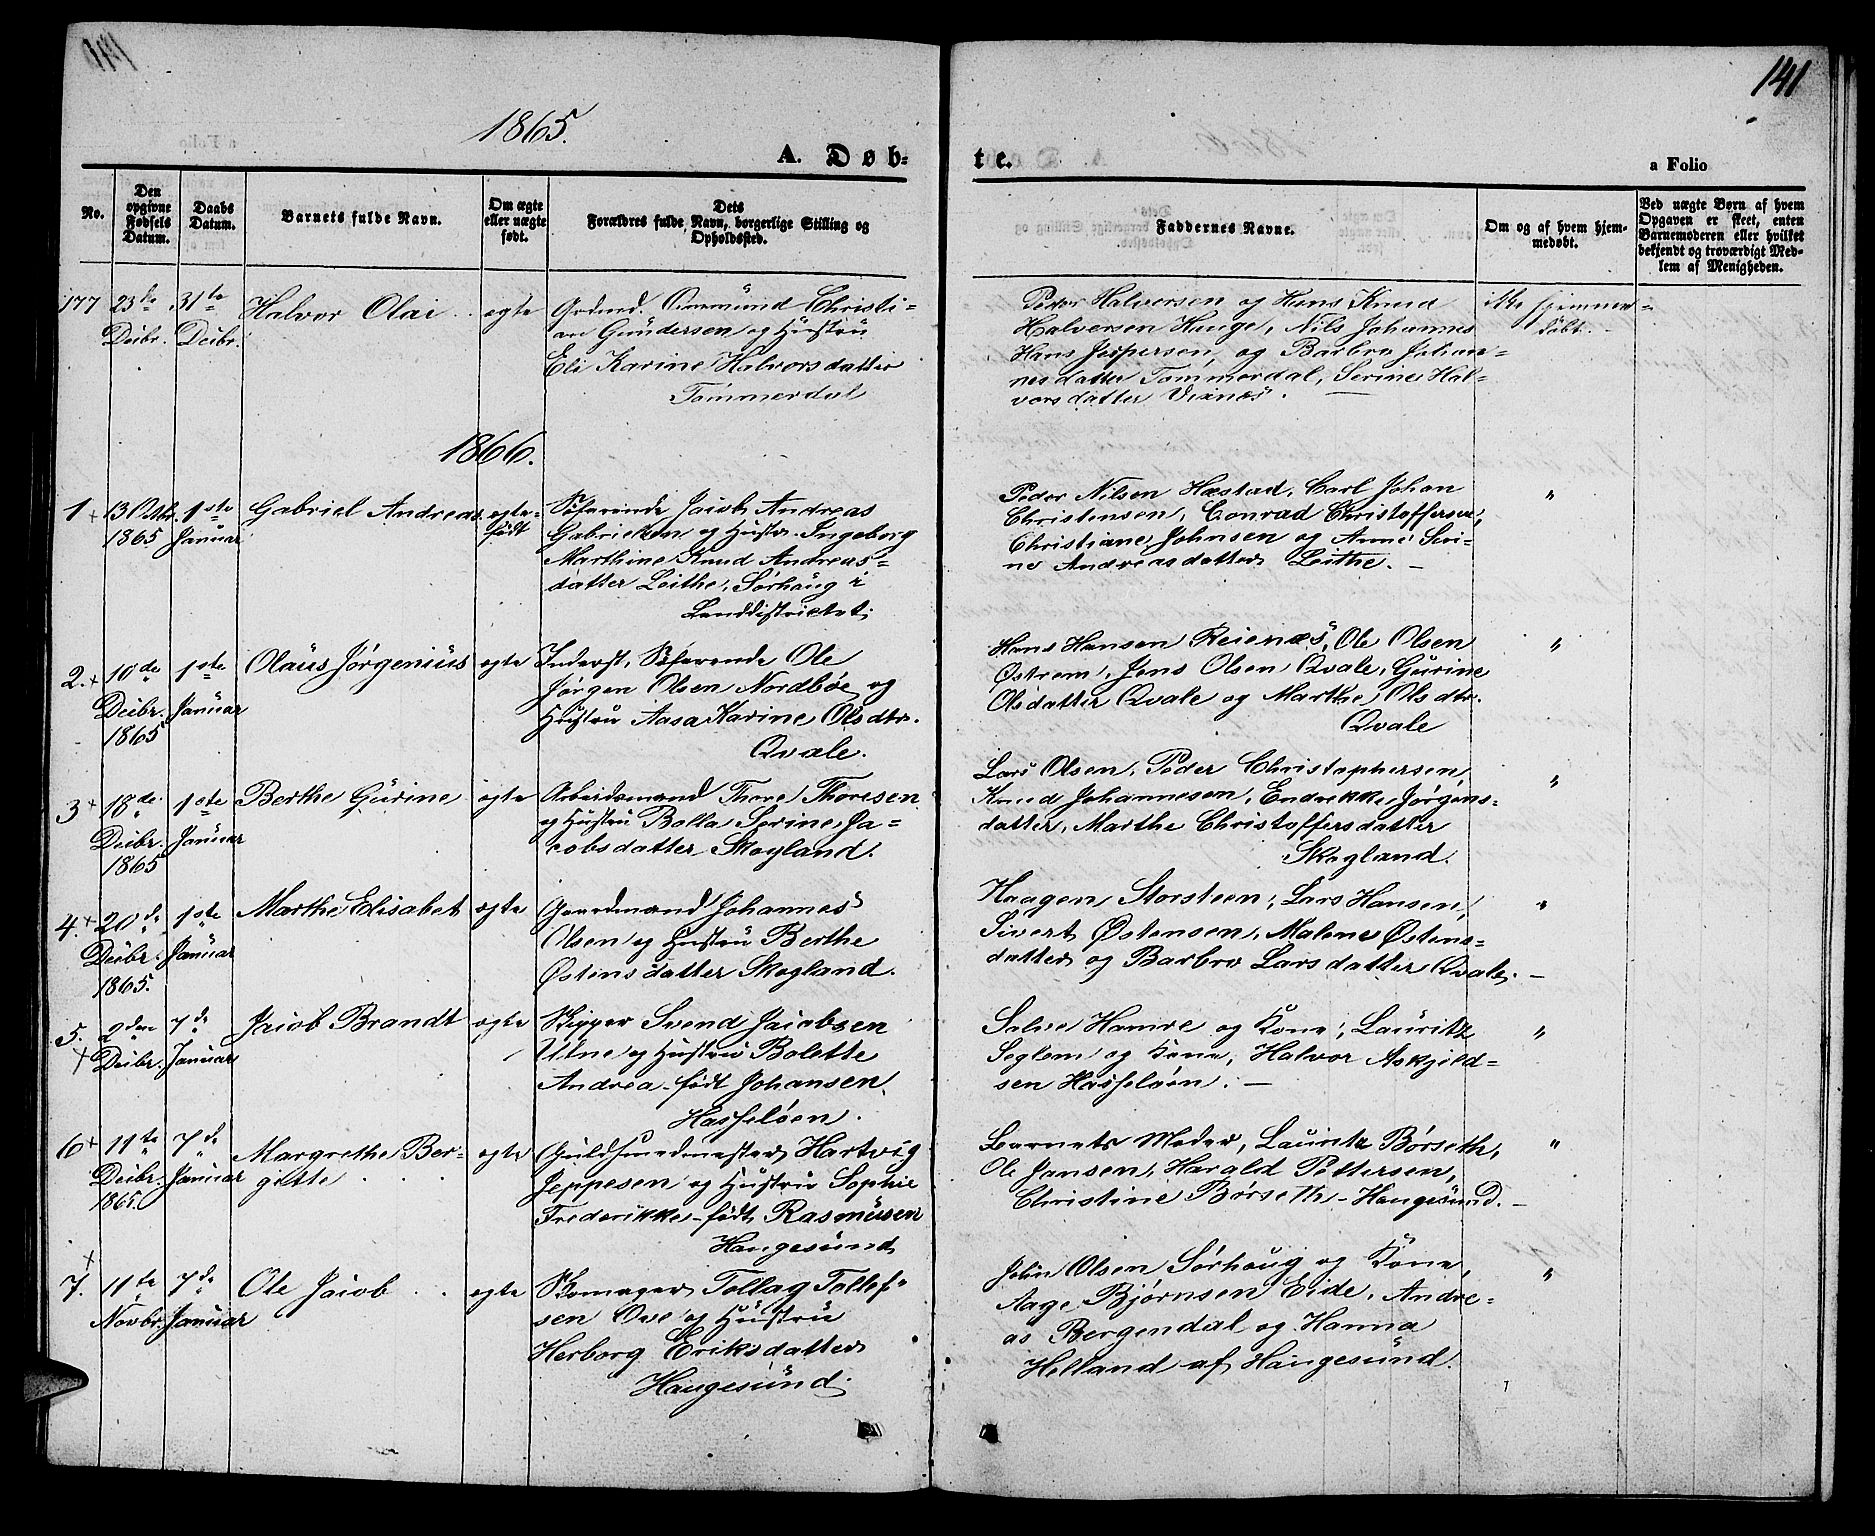 141
1865.
A. Døb-
te.
a Folio
No.
Den opgivne Fødsels Datum.
Daabs Datum.
Barnets fulde Navn.
Om ægte eller uægte født.
Dets Forældres fulde Navn, borgerlige Stilling og Opholdssted.
Faddernes Navne.
Om og af hvem hjemmedøbt.
Ved uægte Børn af hvem Opgaven er skeet, enten Barnemoderen eller hvilket bekjendt og troværdigt Medlem af Menigheden.
177 23de Decbr. 31te Decbr. Halvor Olai egte
Grdmd. Ommund Christi-
an Gundersen og Hustru
Eli Karine Halvorsdatter
Tømmerdal
Peder Halversen og Hans Knud
Halversen Hauge, Nils Johannes
Hans Jespersen, og Barbro Johan-
nesdatter Tømmerdal, Serine Hal-
vorsdatter Vixnæs.
ikke hjemme-
døbt.
1866.
1 13 Octbr. 1865 1ste Januar Gabriel Andreas egte-
født
Søfarende Jacob Andreas
Gabrielsen og Hustr. Ingeborg
Marthine Knud Andreas-
datter Leithe, Sørhaug i
Landdistrictet.
Peder Nilsen Hæstad, Carl Johan
Christensen, Conrad Christoffersen,
Christiane Johnsen og Anne Seri-
ne Andreasdatter Leithe.
"
2. 10de Decbr. 1865 1ste Januar Olaus Jørgenius egte
Inderst, Søfarende Ole
Jørgen Olsen Nordbøe og
Hustru Aasa Karine Olsdtr.
Qvale.
Hans Hansen Reienæs, Ole Olsen
Østrem, Jens Olsen Qvale, Gurine
Olsdatter Qvale og Marthe Olsdtr.
Qvale
"
3 18de Decbr. 1865 1ste Januar Berthe Gurine egte
Arbeidsmand Thore Thoresen
og Hustru Bolla Serine Ja-
cobsdatter Skogland.
Lars Olsen, Peder Christophersen,
Knud Johannesen, Endrikke Jørgens-
datter, Marthe Christoffersdatter
Skogland.
"
4. 20de Decbr. 1865. 1ste Januar Marthe Elisabet egte
Gaardmand Johannes
Olsen og Hustru Berthe
Østensdatter Skogland.
Haagen Storsteen, Lars Hansen,
Sivert Østensen, Malene Østens-
datter og Barbro Larsdatter Qvale.
"
5. 2den Decbr. 7de Januar Jacob Brandt egte
Skipper Svend Jacobsen
Utne og Hustru Bolette
Andrea født Johansen,
Hasseløen.
Salve Hamre og Kone, Lauritz
Seglem og Kone, Halvor Askjeld-
sen Hasseløen.
"
6 11te Decbr. 1865. 7de Januar Margrethe Ber-
gitte egte
Guldsmedmester Hartvig
Jeppesen og Hustru Sophie
Frederikke født Rasmussen
Haugesund
Barnets Moder, Lauritz Børseth,
Ole Jansen, Harald Pettersen,
Christine Børseth - Haugesund.
"
7. 11te Novbr. 7de Januar Ole Jacob egte
Skomager Tollag Tollef-
sen Ove og Hustru
Herborg Eriksdatter
Haugesund.
John Olsen Sørhaug og Kone,
Aage Bjørnsen Eide, Andre-
as Bergendal og Hanna
Helland af Haugesund.
"